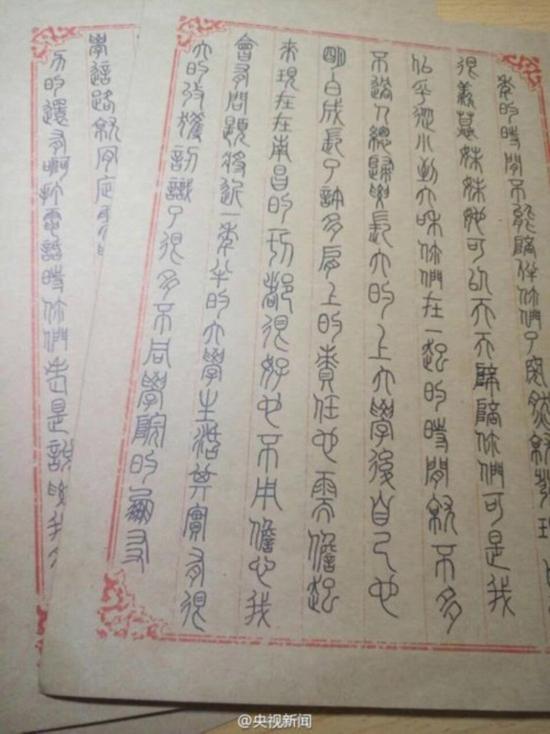 年的時間不能陪伴你們了突然
很羨慕妹妹她可以天天陪你們可是我
似乎從小到大和你們在一起的時間就不多
不過人總歸要長大的上大學後自己也
明白成長了許多肩上的責任也要擔起
來現在在南昌的一切都很好也不用擔心我
會有問題將近一年半的大學生活其實有很
大的收穫認識了很多不同學院的朋友
方的還有啊打電話時你們老是說
@央视新闻